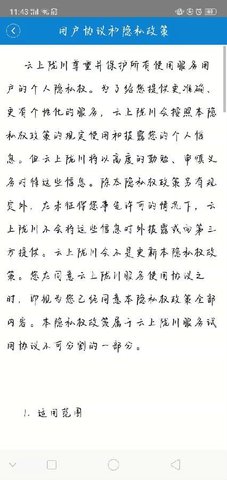 11:43
用户协议和隐私政策
云上陇川尊重并保护所有使用服务用
户的个人隐私权。为了给您提供更准确、
更有个性化的服务，云上陇川会按照本隐
私权政策的规定使用和披露您的个人信
息。但云上陇川将以高度的勤勉、审慎义
务对待这些信息。除本隐私权政策另有规
定外，在未征得您事先许可的情况下，云
上陇川不会将这些信息对外披露或向第三
方提供。云上陇川会不时更新本隐私权政
策。您在同意云上陇川服务使用协议之
时，即视为您已经同意本隐私权政策全部
内容。本隐私权政策属于云上陇川服务试
用协议不可分割的一部分。
1. 适用范围